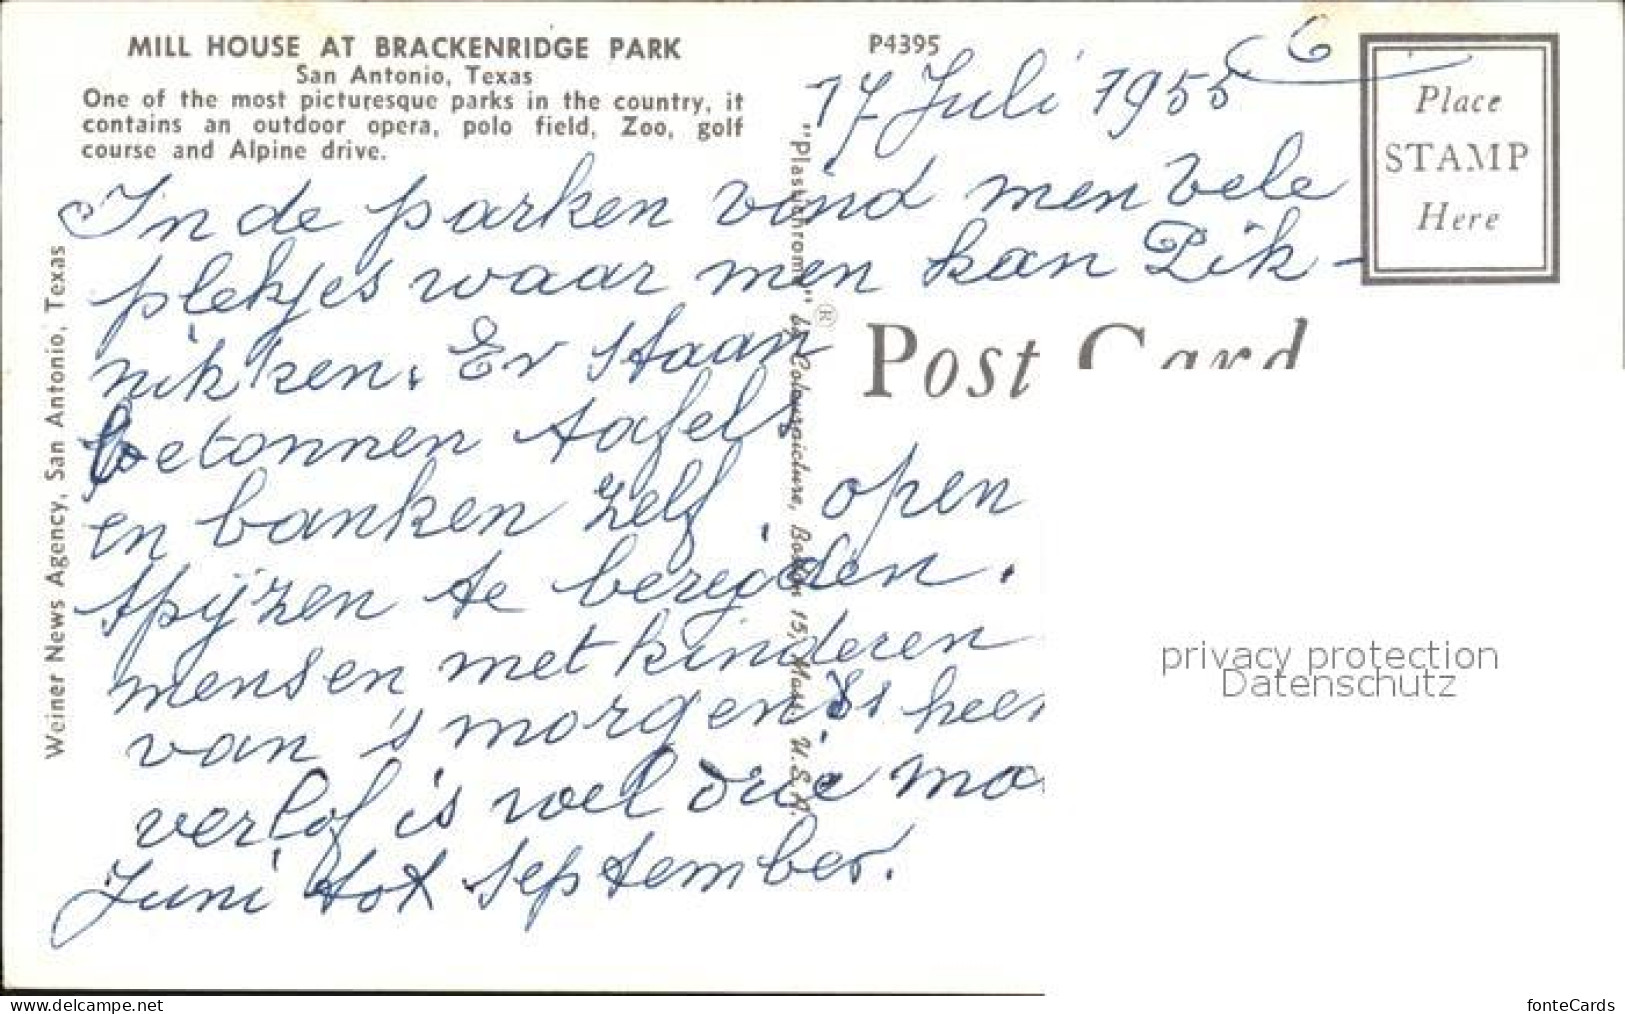 MILL HOUSE AT BRACKENRIDGE PARK
San Antonio, Texas
One of the most picturesque parks in the country, it
contains an outdoor opera, polo field, Zoo, golf
course and Alpine drive.
P4395
6
17 Juli 1955
Place
STAMP
Here
In de parken vind men vele
plekjes waar men kan Pik-
nikken. Er staan
betonnen tafels
en banken zelf, open
spijzen te bereiden.
mensen met kinderen
van 's morgens
verlof is wel drie
Juni tot September.
Post Card
Weiner News Agency, San Antonio, Texas
"Plastichrome" ® by Colourpicture, Boston 15, Mass., U.S.A.
privacy protection
Datenschutz
www.delcampe.net
fonteCards